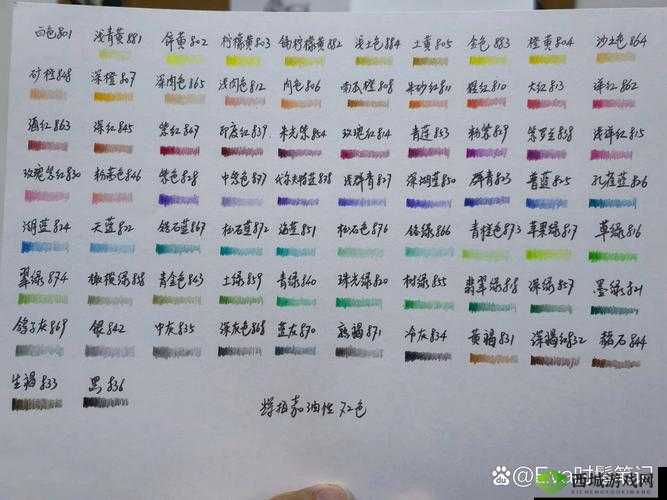 白色801 浅青黄881 锌黄802 柠檬黄803 镉柠檬黄882 浅土色884 土黄805 金色883 橙黄804 沙土色864
砂橙848 深橙807 深肉色865 浅肉色812 肉色806 南瓜橙808 朱砂红811 猩红810 大红813 洋红862
酒红863 深红845 紫红847 印度红839 朱光紫854 玫瑰红814 青莲853 粉紫819 紫罗兰858 浅洋红815
玫瑰紫红830 粉姜色846 紫色828 中紫色837 代尔夫特蓝838 浅群青827 深湖蓝850 群青823 普蓝825 孔雀蓝826
湖蓝824 天蓝822 锆石蓝867 松石蓝872 海蓝851 松石色876 铬绿866 青柑色873 苹果绿817 草绿816
翠绿874 橄榄绿818 青金色863 土绿859 青绿860 珠光绿820 树绿855 翡翠绿818 深绿857 墨绿821
鸽子灰869 银842 中灰835 深灰色868 蓝灰870 熟褐871 冷灰834 黄褐831 深褐832 赭石844
生褐833 黑836
辉柏嘉油性72色
西城游戏网